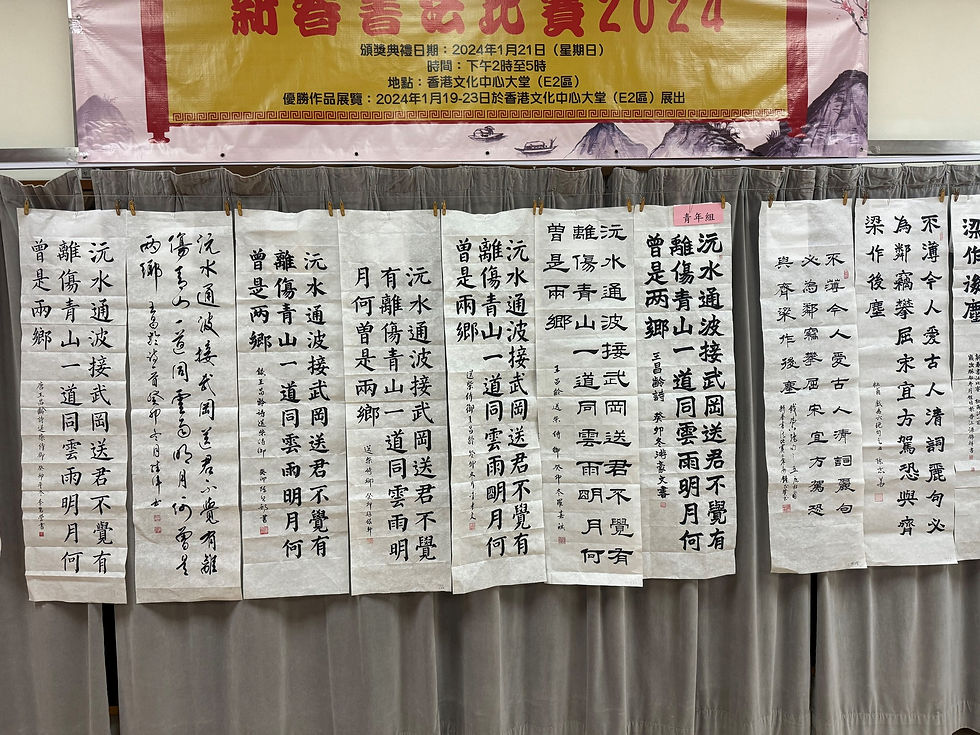 新春書法比賽2024
頒獎典禮日期：2024年1月21日（星期日）
時間：下午2時至5時
地點：香港文化中心大堂（E2區）
優勝作品展覽：2024年1月19-23日於香港文化中心大堂（E2區）展出
梁作後塵
不薄今人爱古人清詞麗句必
為鄰竊攀屈宋宜方駕恐與齊
梁作後塵
不薄今人愛古人清詞麗句
必為鄰竊攀屈宋宜方駕恐
與齊梁作後塵
青年組
沅水通波接武岡送君不覺有
離傷青山一道同雲雨明月何
曾是两鄉
王昌齡詩 癸卯冬
沅水通波接武岡送君不覺有
離傷青山一道同雲雨明月何
曾是兩鄉
王昌齡送柴侍御癸卯冬
沅水通波接武岡送君不覺有
離傷青山一道同雲雨明月何
曾是兩鄉
沅水通波接武岡送君不覺
有離傷青山一道同雲雨明
月何曾是兩鄉
送柴侍御 癸卯
沅水通波接武岡送君不覺有
離傷青山一道同雲雨明月何
曾是兩鄉
沅水通波接武岡送君不覺有離
傷青山一道同雲雨明月何曾是
兩鄉
沅水通波接武岡送君不覺有
離傷青山一道同雲雨明月何
曾是兩鄉
唐王昌齡詩送柴侍御 癸卯